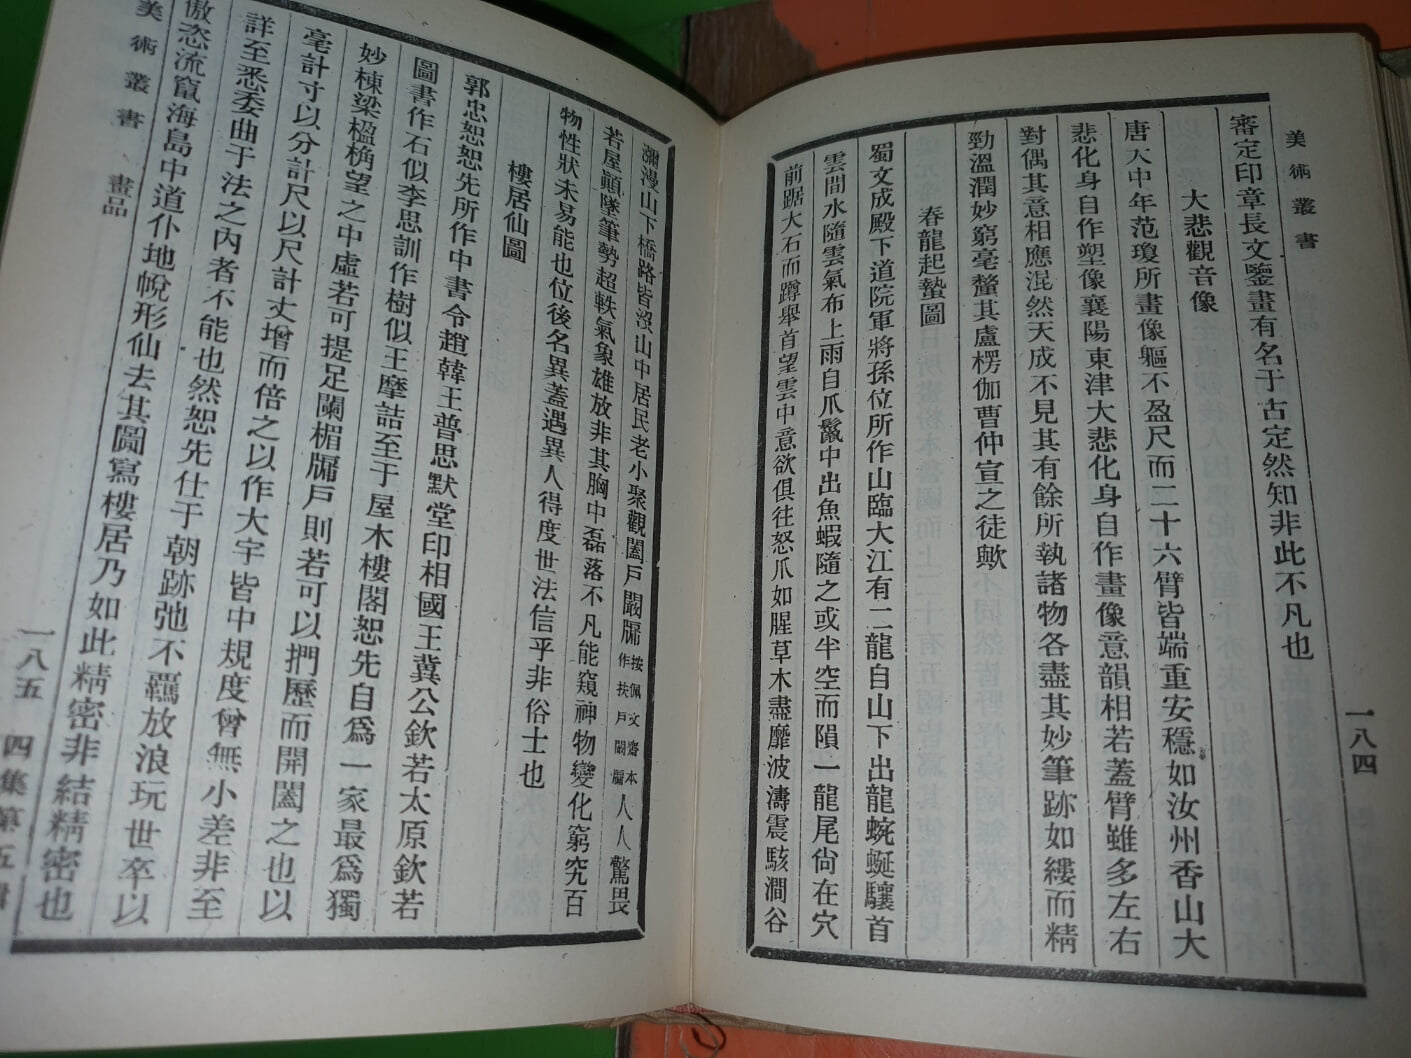 美術叢書
一八四
審定印章長文鑒畫有名于古定然知非此不凡也
大悲觀音像
唐大中年范瓊所畫像軀不盈尺而二十六臂皆端重安穩如汝州香山大
悲化身自作塑像襄陽東津大悲化身自作畫像意韻相若蓋臂雖多左右
對偶其意相應混然天成不見其有餘所執諸物各盡其妙筆跡如縷而精
勁溫潤妙窮毫釐其盧楞伽曹仲宣之徒歟
春龍起蟄圖
蜀文成殿下道院軍將孫位所作山臨大江有二龍自山下出龍蜿蜒驤首
雲間水隨雲氣布上雨自爪鬣中出魚蝦隨之或半空而隕一龍尾尙在穴
前踞大石而蹲舉首望雲中意欲俱往怒爪如腥草木盡靡波濤震駭澗谷
瀰漫山下橋路皆沒山中居民老小聚觀闔戶闞牖按佩文齋本作扶戶闞牖人人驚畏
若屋顚墜筆勢超軼氣象雄放非其胸中磊落不凡能窺神物變化窮究百
物性狀未易能也位後名異蓋遇異人得度世法信乎非俗士也
樓居仙圖
郭忠恕恕先所作中書令趙韓王普思默堂印相國王冀公欽若太原欽若
圖書作石似李思訓作樹似王摩詰至于屋木樓閣恕先自爲一家最爲獨
妙棟梁楹桷望之中虛若可提足闌楯牖戶則若可以捫歷而開闔之也以
毫計寸以分計尺以尺計丈增而倍之以作大宇皆中規度曾無小差非至
詳至悉委曲于法之內者不能也然恕先仕于朝跡弛不羈放浪玩世卒以
傲恣流竄海島中道仆地蛻形仙去其圖寫樓居乃如此精密非結精密也
美術叢書 畫品
一八五 四集第五